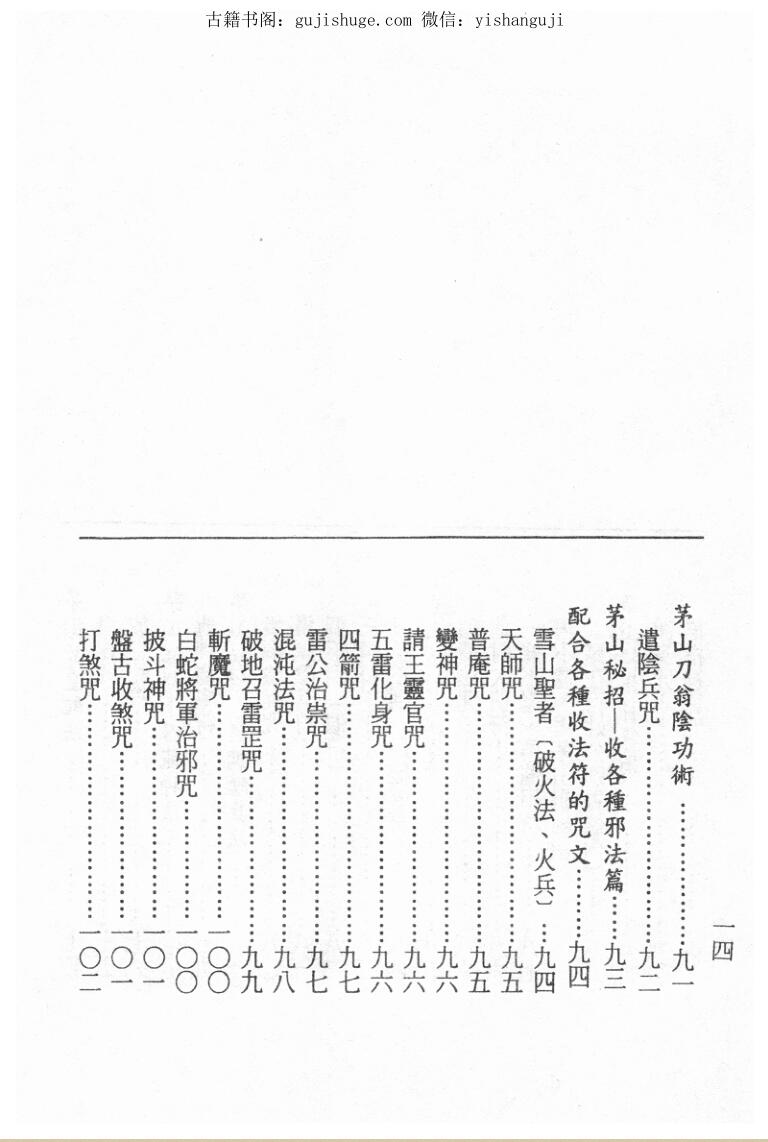 古籍书阁：gujishuge.com 微信：yishanguji
一四
茅山刀翁陰功術 ……………九一
遣陰兵咒……………………九二
茅山秘招—收各種邪法篇……九三
配合各種收法符的咒文………九四
雪山聖者〔破火法、火兵〕…九四
天師咒………………………九五
普庵咒………………………九五
變神咒………………………九六
請王靈官咒…………………九六
五雷化身咒…………………九六
四箭咒………………………九七
雷公治祟咒…………………九七
混沌法咒……………………九八
破地召雷罡咒………………九九
斬魔咒………………………一〇〇
白蛇將軍治邪咒……………一〇〇
披斗神咒……………………一〇一
盤古收煞咒…………………一〇一
打煞咒………………………一〇二